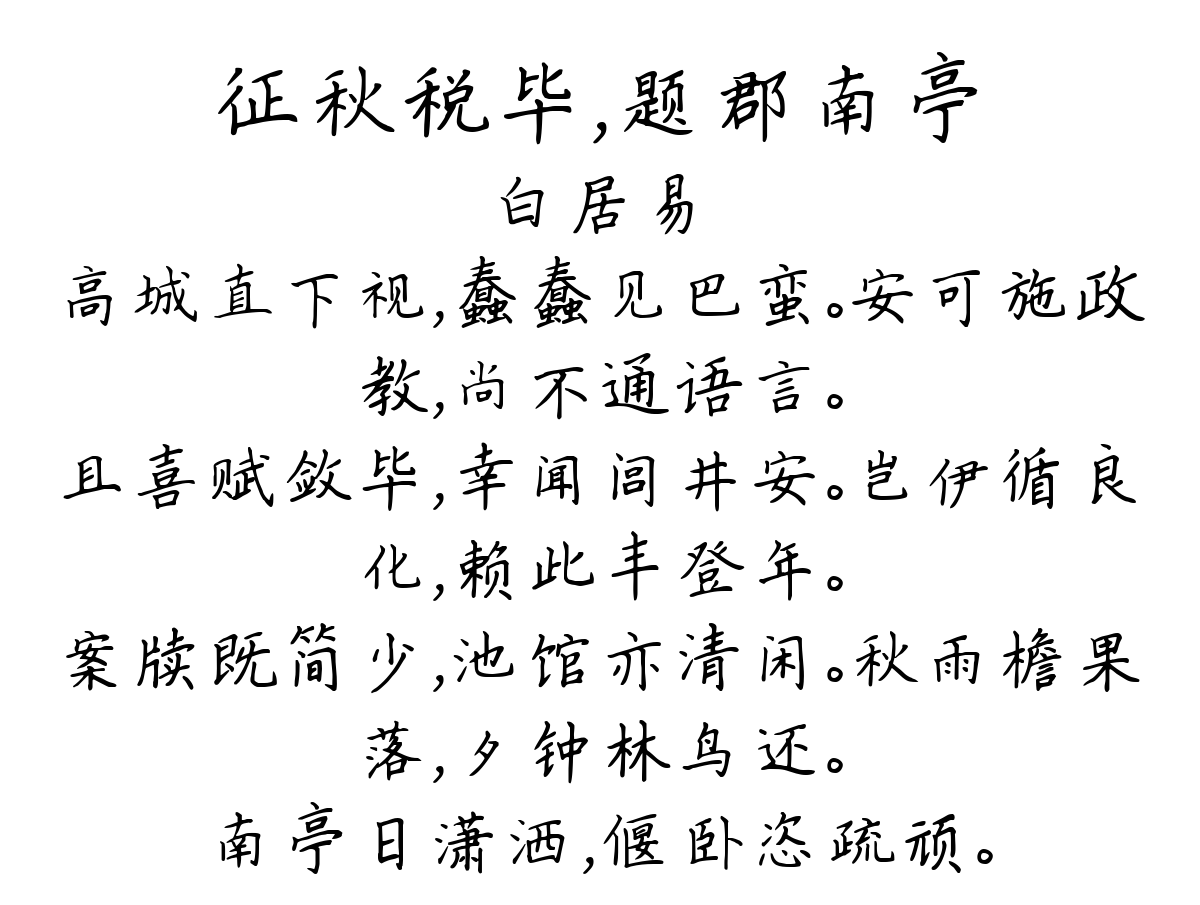 征秋税毕,题郡南亭
白居易
高城直下视,蠢蠢见巴蛮。安可施政
教,尚不通语言。
且喜赋敛毕,幸闻闾井安。岂伊循良
化,赖此丰登年。
案牍既简少,池馆亦清闲。秋雨檐果
落,夕钟林鸟还。
南亭日潇洒,偃卧恣疏顽。